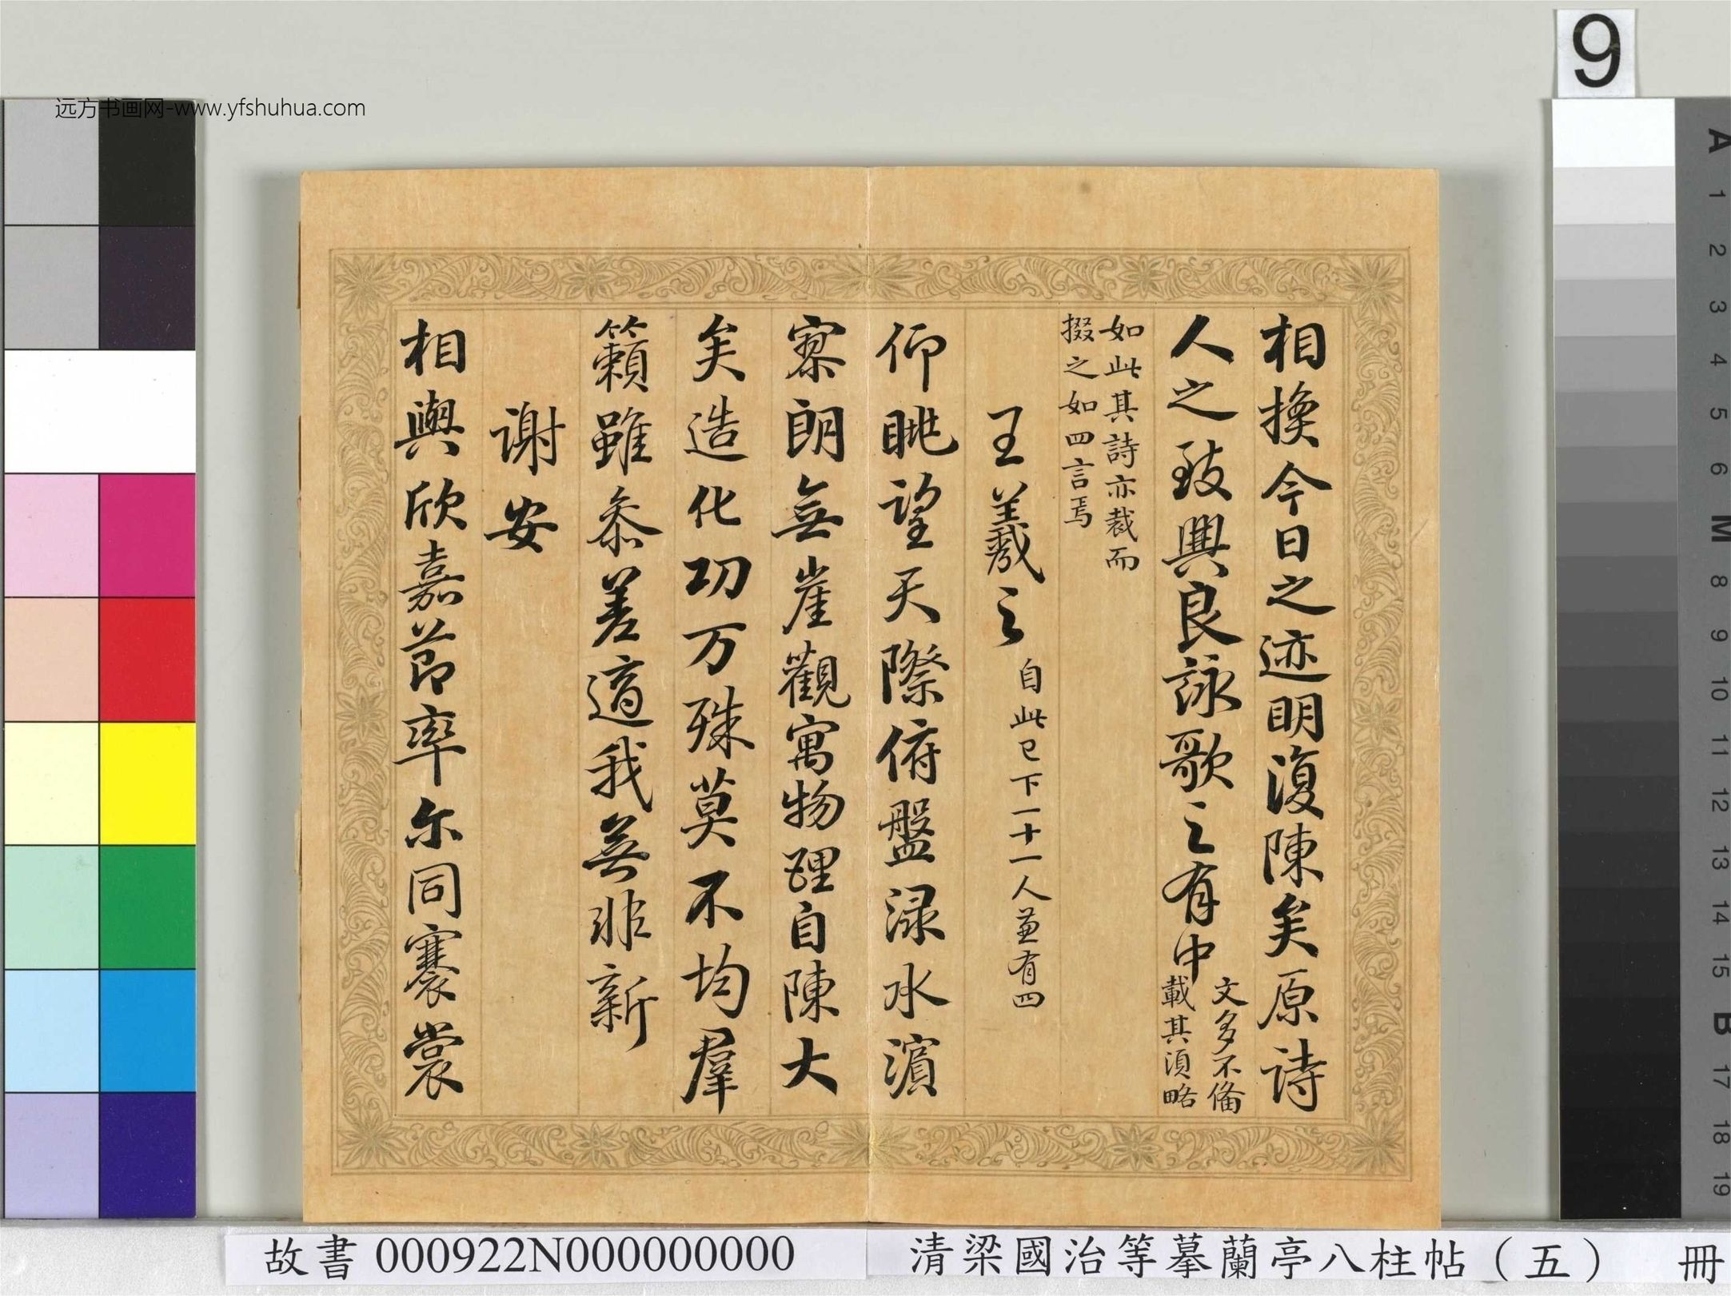 9
远方书画网-www.yfshuhua.com
相換今日之迹明復陳矣原詩
人之致興良詠歌之有由
文多不備
載其湏略
如此其詩亦裁而
掇之如四言焉
王羲之 自此已下一十一人兼有四
仰眺望天際俯盤淥水濱
寥朗無崖觀寓物理自陳大
矣造化功万殊莫不均羣
籟雖叅差適我無非新
謝安
相與欣嘉節率尔同褰裳
A 1 2 3 4 5 6 M 8 9 10 11 12 13 14 15 B 17 18 19
故書 000922N000000000
清梁國治等摹蘭亭八柱帖（五） 冊